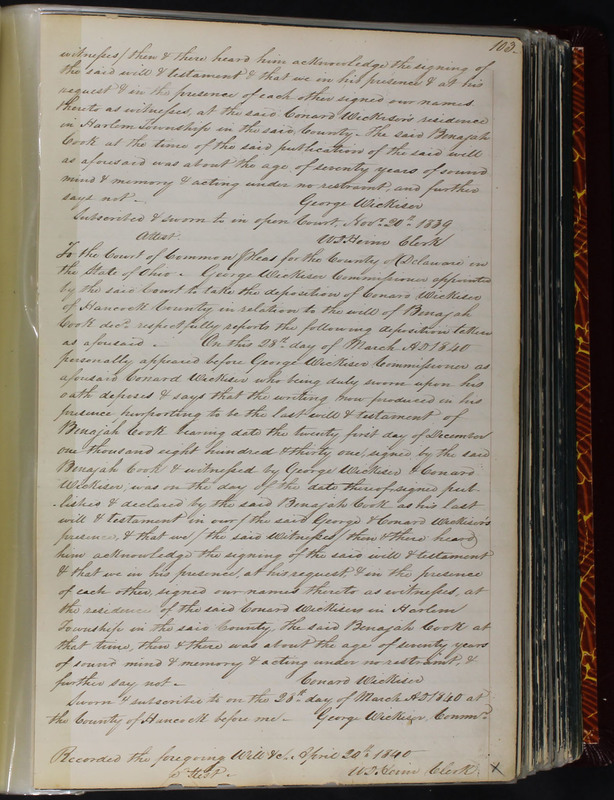 103.
witnesses/ then & there heard him acknowledge the signing of
the said will & testament & that we in his presence & at his
request & in the presence of each other signed our names
thereto as witnesses, at the said Conard Wickisers residence
in Harlem Township in the said County – the said Benajah
Cook at the time of the said publication of the said will
as aforesaid was about the age of seventy years of sound
mind & memory & acting under no restraint, and further
says not – George Wickiser
Subscribed & sworn to in open Court, Novr. 20th 1839
Attest. Clerk
To the Court of Common Pleas for the County of Delaware in
the State of Ohio – George Wickiser Commissioner appointed
by the said Court to take the deposition of Conard Wickiser
of Hancock County in relation to the will of Benajah
Cook decd. respectfully reports the following deposition taken
as aforesaid – On this 28th day of March AD 1840
personally appeared before George Wickiser Commissioner as
aforesaid Conard Wickiser who being duly sworn upon his
oath deposes & says that the writing now produced in his
presence purporting to be the last will & testament of
Benajah Cook bearing date the twenty first day of December
one thousand eight hundred & thirty one, signed by the said
Benajah Cook & witnessed by George Wickiser & Conard
Wickiser, was on the day of the date thereof signed pub-
lished & declared by the said Benajah Cook as his last
will & testament in our/ the said George & Conard Wickiser's
presence, & that we/ the said witnesses/ then & there heard
him acknowledge the signing of the said will & testament
& that we in his presence, at his request, & in the presence
of each other, signed our names thereto as witnesses, at
the residence of the said Conard Wickisers in Harlem
Township in the said County, the said Benajah Cook at
that time, then & there was about the age of seventy years
of sound mind & memory & acting under no restraint, &
further say not – Conard Wickiser
Sworn & subscribed to on the 28th day of March AD 1840 at
the County of Hancock before me – George Wickiser, Commr.
Recorded the foregoing Will &c. April 20th 1840
Attest – Clerk
X